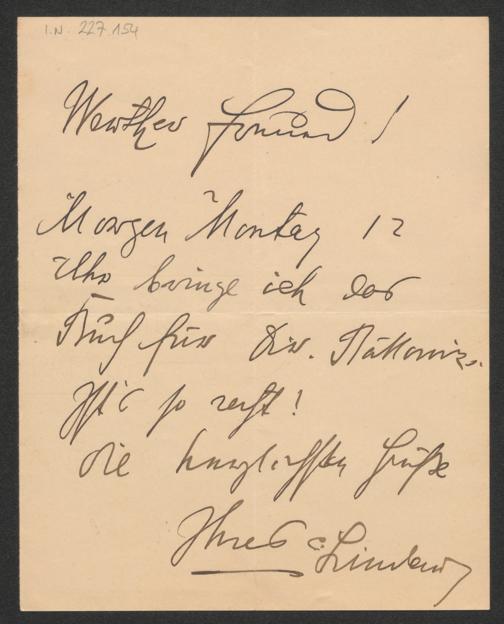 I.N. 227.154
Werther Freund!
Morgen Montag 12
Uhr bringe ich das
Buch für Dir.
Ist's so recht!
die herzlichsten Grüße
Ihres C. Lindau